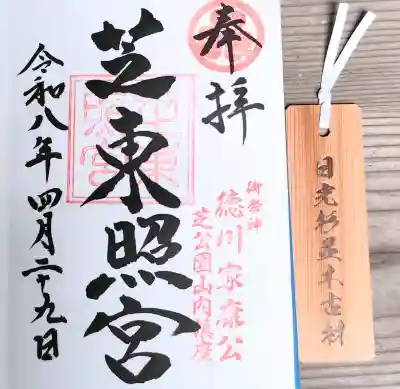 奉拝
芝東照宮
御祭神
徳川家康公
芝公園山内鎮座
令和八年四月二十九日
日光杉並木古材